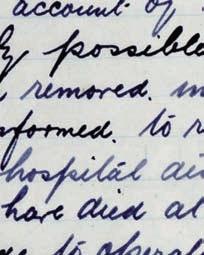 account of
possible
removed.
formed. to
hospital
have died at
to